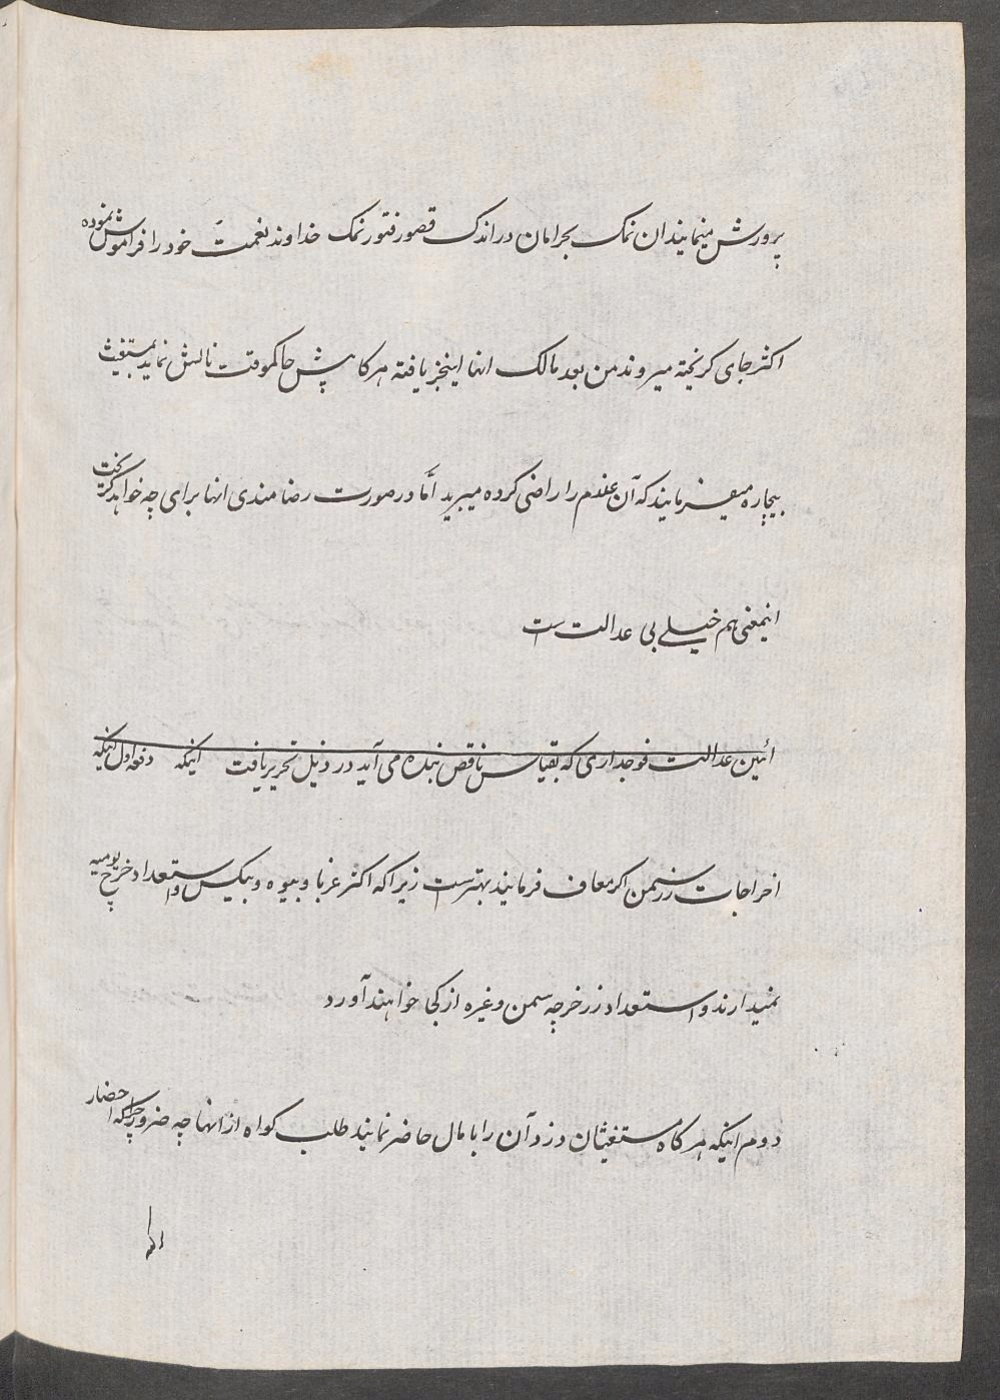 پرورش مینمایند ان نمک بحرامان در اندک قصور فتور نمک خداوند نعمت خود را فراموش نموده
اکثر جای کریخته میروند من بعد مالک انها اینخبر یافته هرکاه پیش حاکموقت نالش نماید مستغیث
بیچاره میفرمایند که آن غلام را راضی کرده میبرید امّا در صورت رضامندی انها برای چه خواهد کریخت
اینمعنی هم خیلے بی عدالت ست
ائین عدالت فوجداری که بقیاس ناقص بنده می آید در ذیل تحریر یافت اینکه دفعه اول اینکه
اخراجات زر سمن اکر معاف فرمایند بهترست زیراکه اکثر غربا و بیوه و بیکس و استعداد خرچ یومیه
نمیدارند و استعداد زر خرچه سمن وغیره از کجا خواهند آورد
دوم اینکه هرکاه مستغیثان دزدآن را با مال حاضر نمایند طلب کواه از انها چه ضرور چراکه احضار